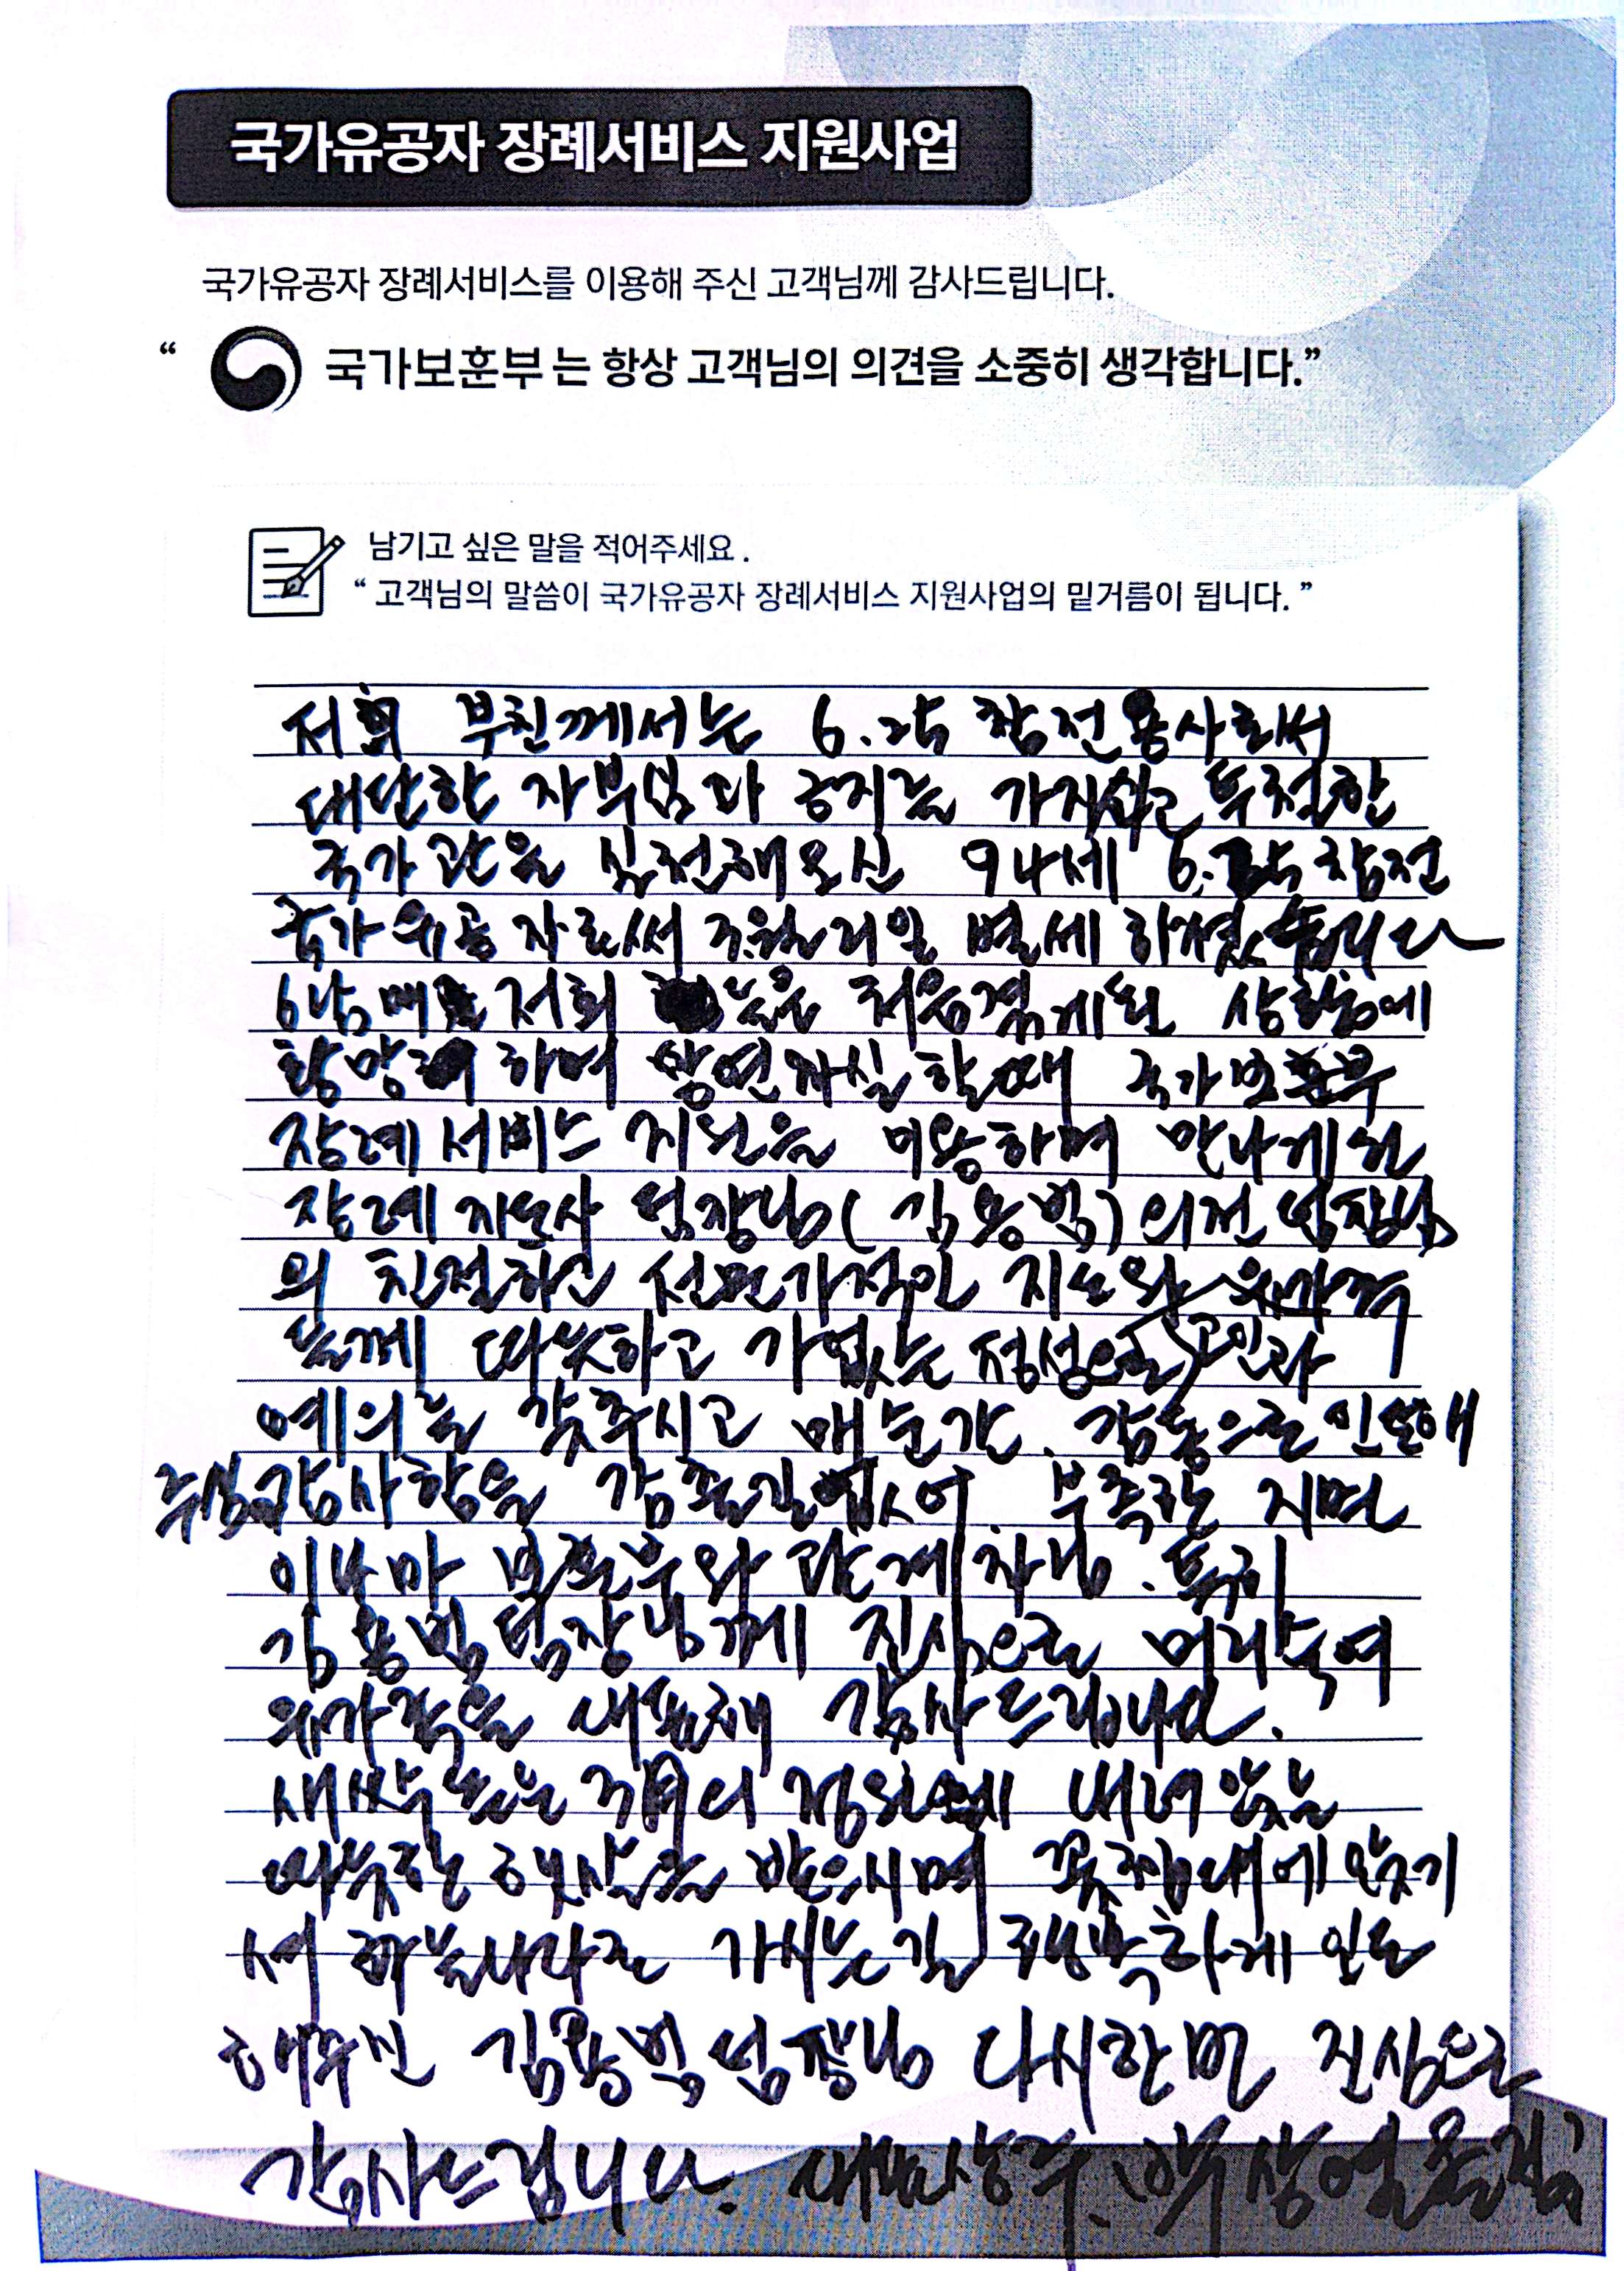 국가유공자 장례서비스 지원사업
국가유공자 장례서비스를 이용해 주신 고객님께 감사드립니다.
“ 국가보훈부 는 항상 고객님의 의견을 소중히 생각합니다.”
남기고 싶은 말을 적어주세요.
“ 고객님의 말씀이 국가유공자 장례서비스 지원사업의 밑거름이 됩니다. ”
저희 부친께서는 6.25 참전용사로써
대단한 자부심과 긍지를 가지시고 투철한
국가관을 실천해오신 94세 6.25 참전
국가유공자로써 별세 하셨습니다
6남매 저희 들은 처음겪게된 상황에
황망 하여 망연자실 할때 국가보훈부
장례서비스 지원을 이용하며 만나게된
장례지도사 팀장님( 김용범) 의전팀장님
의 친절하고 전문가적인 지도와 유가족
들께 따뜻하고 가없는 정성으로 고인과
예의를 갖추시고 매순간. 감동으로 인도해
주심 감사함을 감출길없어. 부족한 지면
이나마 보훈부와 관계자님. 특히
김용범팀장님께 진심으로 머리숙여
유가족을 대표해 감사드립니다.
새싹돋은 정원에 내려앉는
따뜻한 햇살을 받으시며 꽃침대에 앉기
셔 하늘나라로 가시는길 행복하게 인도
해주신 김용범팀장님 다시한번 진심으로
감사드립니다. 대표상주.